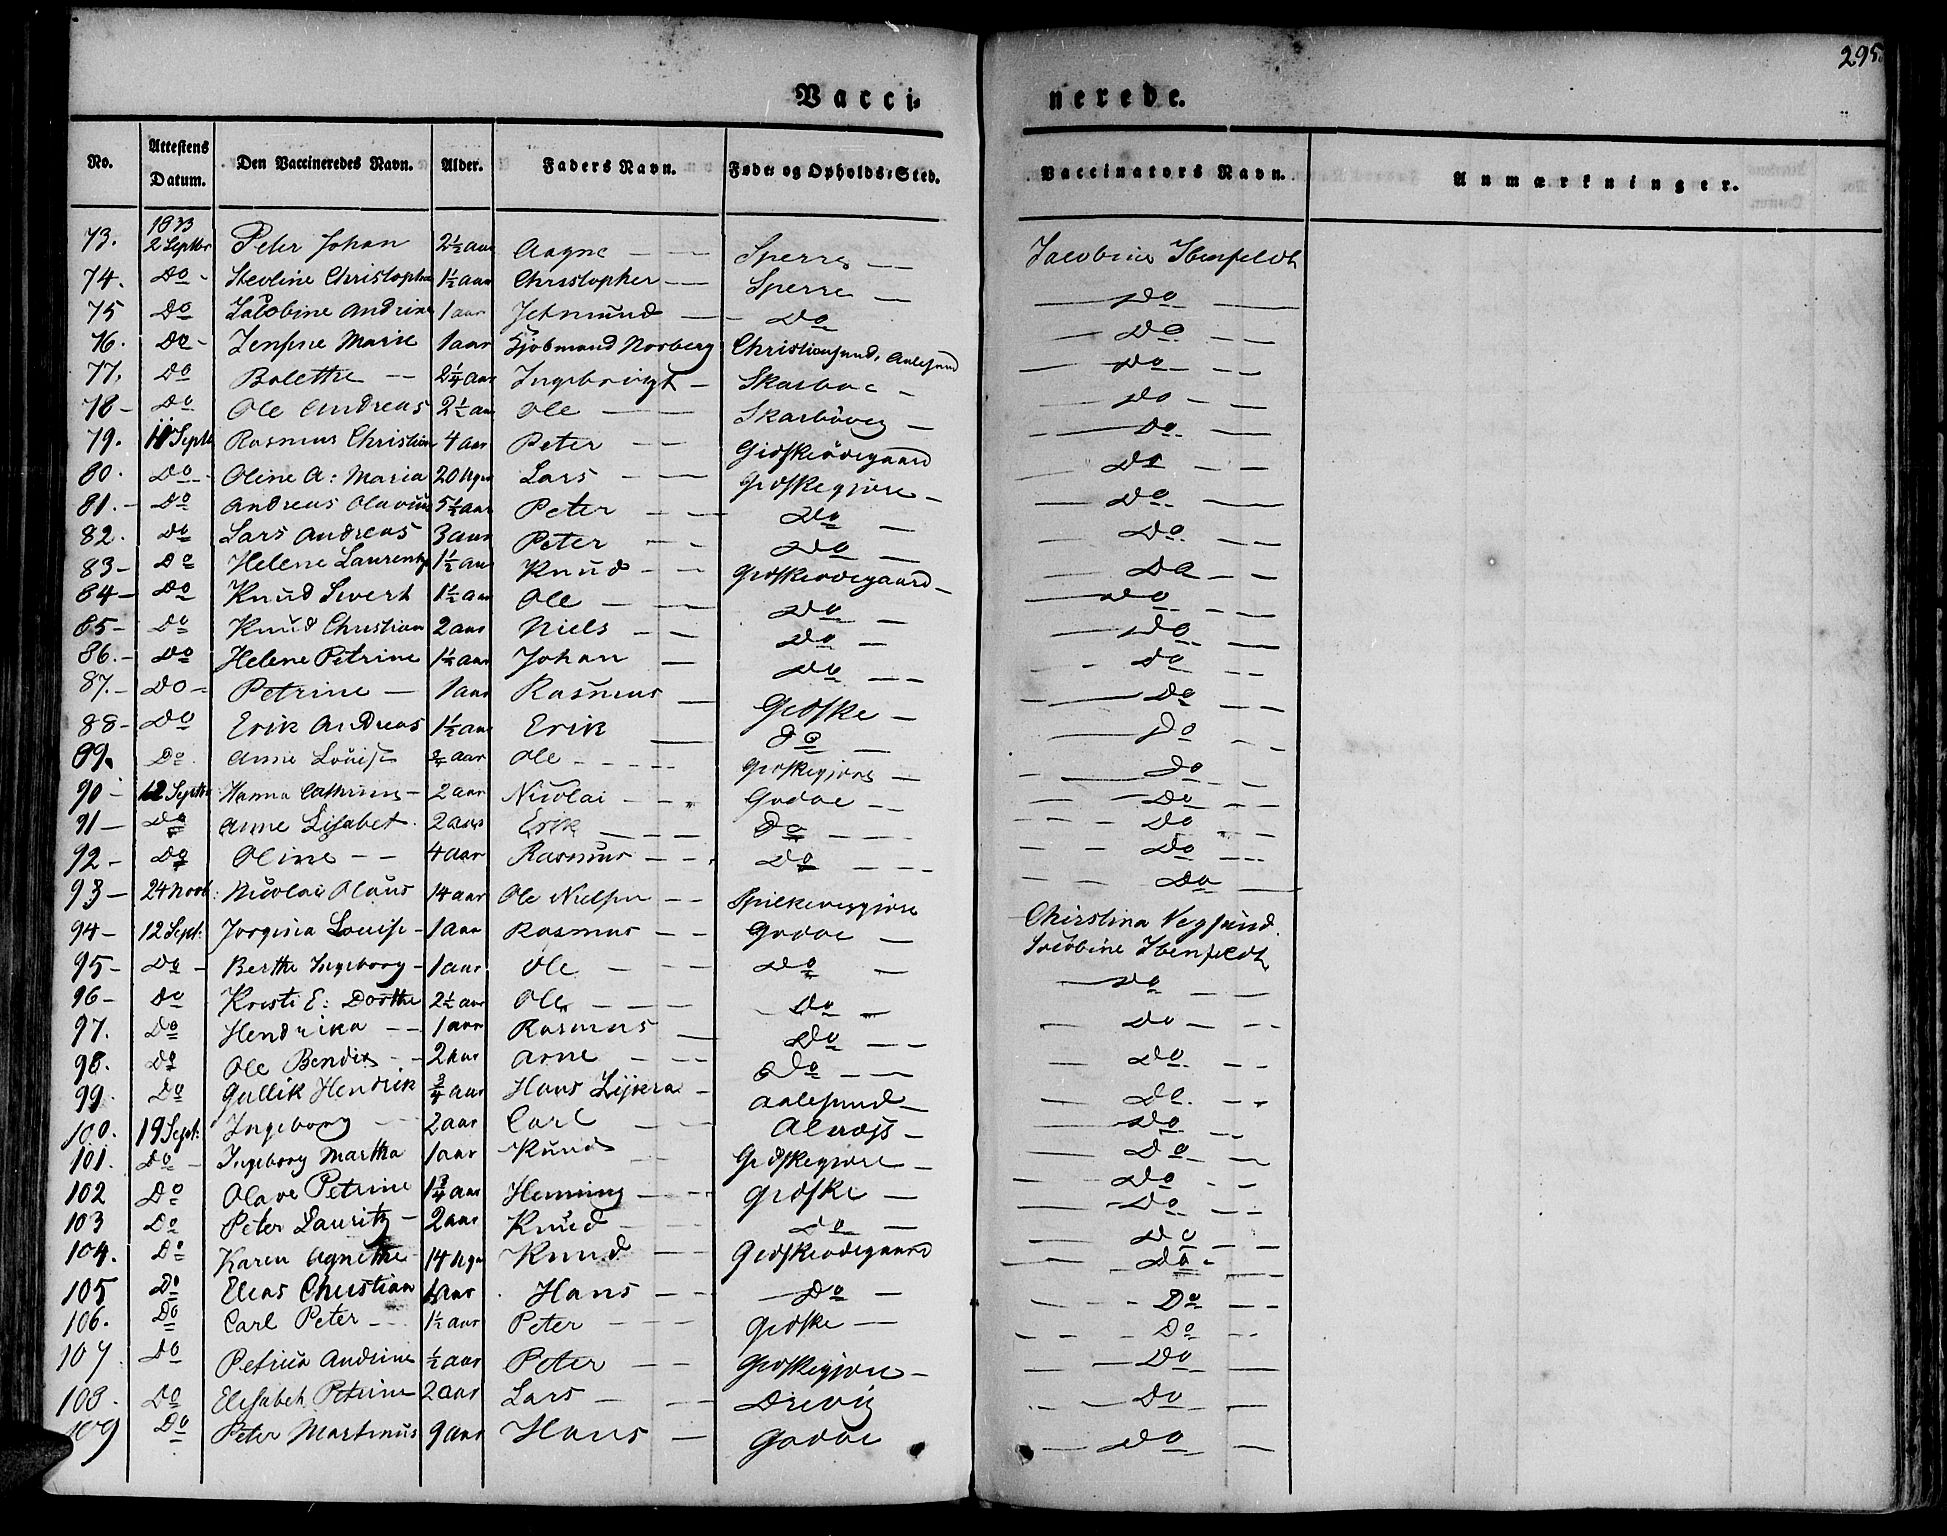 295.
Vacci- nerede.
No. Attestens Datum. Den Vaccineredes Navn. Alder. Faders Navn. Føde- og Opholds-Sted. Vaccinators Navn. Anmærkninger.
1833
73. 2 Septbr Peter Johan 2½ aar Aagne — — Sperre — Jacobine Ibenfeldt
74. Do - Stevline Christophia 1½ aar Christopher — — Sperre — — Do —
75 Do Jacobine Andrine 1 aar Jetmund — — Do — Do — —
76. Do - Jensine Marie 1 aar Kjøbmand Norberg Christiansund, Aalesund — Do — —
77. Do Bolethe — 2¼ aar Ingebrigt — Skarboe - — Do — —
78 - Do Ole Andreas 2½ aar Ole — — Skarbövig — — Do. — —
79. 11 Septb Rasmus Christian 4 aar Peter — — Gidskeödegaard — Do — —
80. Do - Oline A: Maria 20 Ugr Lars — — Gidskegjöre — — Do — —
81. - Do Andreas Olavius 5½ aar Peter — — Do — — Do — —
82. Do Lars Andreas 3 aar Peter — - Do — — Do — —
83 - Do Helene Laurentze 1½ aar Knud - - Gidskeödegaard — — Do — —
84 - Do Knud Sivert 1½ aar Ole — — Do — — Do — —
85 - Do Knud Christian 2 aar Niels - — Do — — Do — —
86. - Do Helene Petrine 1½ aar Johan — Do — — — Do — —
87. - Do - Petrine — 1 aar Rasmus — Gidske — — Do — —
88 - Do Erik Andreas 1½ aar Erik — Do — — Do — —
89. Do Anne Louise ¾ aar Ole - - - - Gidskegjöre — — Do — —
90 - 12 Septbr Hanna Cathrine - 2 aar Nicolai - - - Godöe — — — Do — —
91 - Do Anne Lisabet. 2 aar Erik — — — Do — — — Do — —
92 - Do Oline — — 4 aar Rasmus — — Do — — — Do — —
93 - 24 Novb: Nicolai Olaus 14 aar Ole Nielsen — — Spilkevigjöre Christina Vegsund.
94 - 12 Sept: Jorgina Louise - 1 aar Rasmus — — Godöe — Jacobine Ibenfeldt
95 - Do - Berthe Ingeborg - 1 aar Ole — — — Do — — Do — —
96 - Do Kristi E: Dorthe 2½ aar Ole — — — Do — — Do — — -
97. Do Hendrika — — 1 aar Rasmus — Do — — — Do — —
98. Do Ole Bendix - - 2 aar Arne — — — Do — — — Do. — —
99. Do Gullik Hendrik ¾ aar Hans - Aalesund — — Do — —
100. 19 Sept: Ingeborg — 2 aar Carl — — Alnæss — — Do — —
101. Do - Ingeborg Martha 1 aar Knud — Gidskegjöre — — Do - —
102 Do Olave Petrine 1¾ aar Henning — - - Gidske — — Do — —
103 Do Peter Lauritz - 2 aar Knud — - Do — — Do — —
104. Do Karen Agnethe 14 Ugr Knud — — Gidskeödegaard — Do -
105 Do Elias Christian aar Hans — — Do — — — - Do — —
106. Do Carl Peter — - 1½ aar Peter — — — Gidske — — — - Do — —
107 Do Petrua Andrine ½ aar Peter — — Gidskegjöre — — Do —
108. Do Elisabeth Petrine 2 aar Lars — — Drevig — Do —
109 Do Peter Martinus 9 aar Hans — Godöe — Do — —